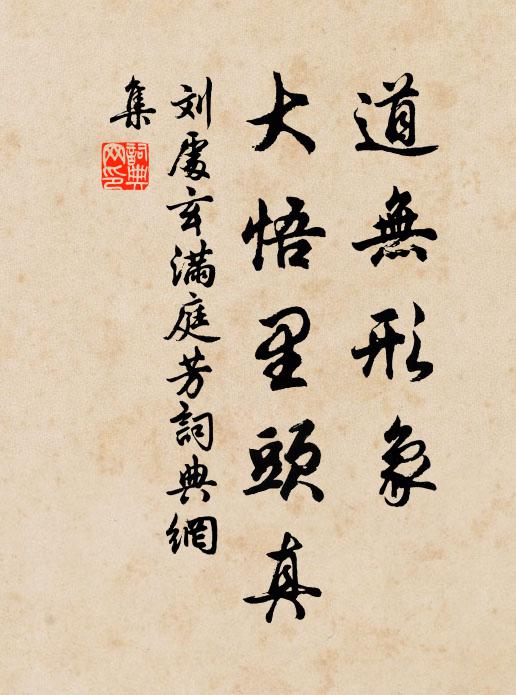 道無形象
大悟里頭真
刘處玄满庭芳詞典網
集
詞典
网印